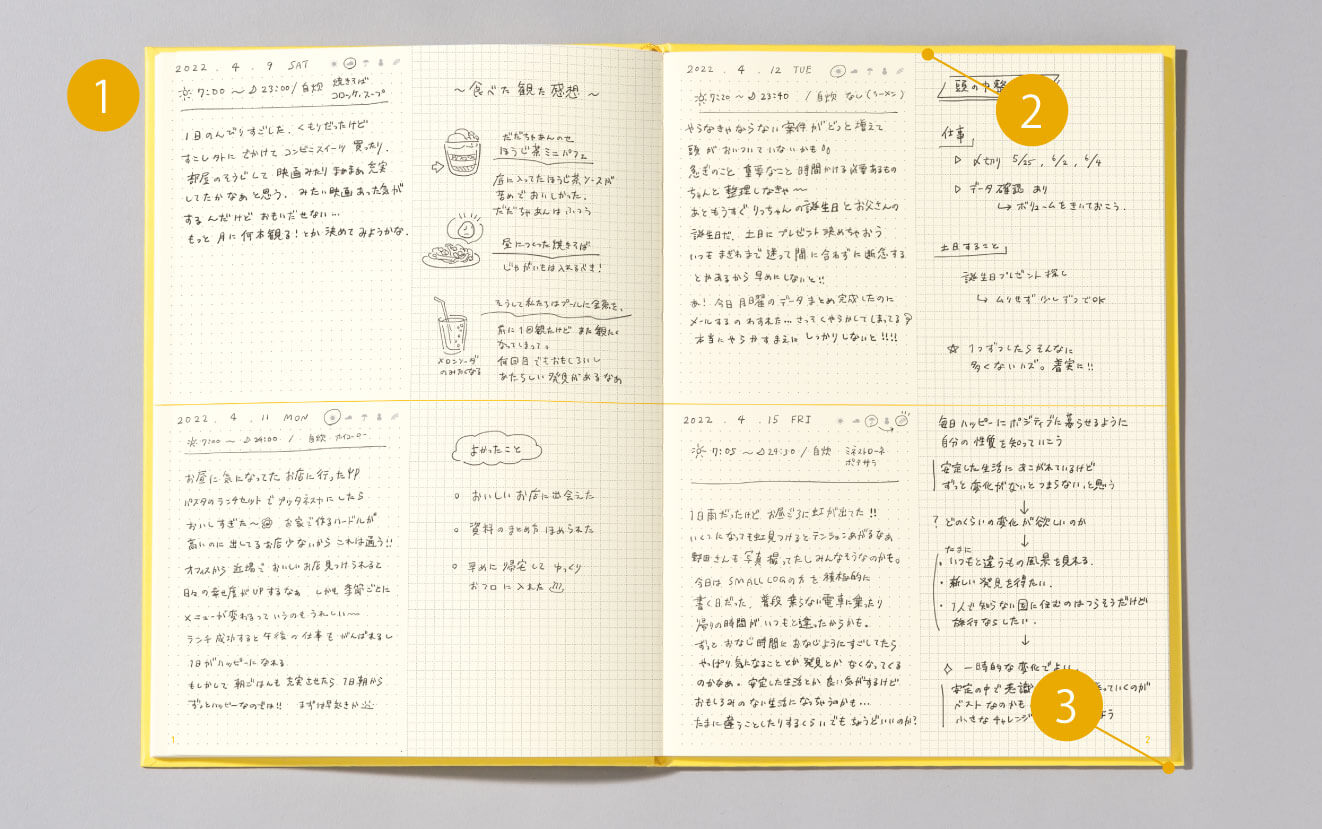 1
2022 . 4 . 9 SAT
7:00 〜 23:00 / 自炊 焼きそば
コロッケ、スープ
1日のんびりすごした。くもりだったけど
すこし外にでかけて コンビニスイーツ 買ったり、
部屋のそうじして 映画みたり まあまあ 充実
してたかなあと思う。みたい映画あった気が
するんだけど おもいだせない…
もっと 月に何本観る!とか 決めてみようかな。
〜食べた 観た 感想〜
だだちゃあんのせ
ほうじ茶ミニパフェ
店に入ってたほうじ茶ソースが
苦めでおいしかった。
だだちゃあんはふつう
昼につくった焼きそば
じゃがいもは入れるべき!
そうして私たちはプールに金魚を、
前に1回観たけど また観たく
なってしまって。
何回目でもおもしろいし
あたらしい発見があるなあ
メロンソーダ
のみたくなる
2022 . 4 . 11 MON
7:00 〜 24:00 / 自炊
お昼に気になってた お店に行った
パスタのランチセットで プッタネスカにしたら
おいしすぎた〜 お家で作るハードルが
高いのに出してるお店少ないから これは通う!!
オフィスから 近場で おいしいお店見つけられると
日々の幸せ度がUPするなあ しかも 季節ごとに
メニューが変わるっていうのも うれしい〜
ランチ成功すると 午後の仕事も がんばれるし
1日がハッピーになれる
もしかして 朝ごはんも充実させたら 1日朝から
ずっとハッピーなのでは!! まずは早起きか
よかったこと
○ おいしいお店に出会えた
○ 資料のまとめ方 ほめられた
○ 早めに帰宅して ゆっくり
おフロに入れた
1
2022 . 4 . 12 TUE
7:20 〜 23:40 / 自炊 なし(ラーメン)
やらなきゃならない 案件が どっと 増えて
頭が おいついていないかも
急ぎのこと 重要なこと 時間かける必要あるもの
ちゃんと 整理しなきゃ〜
あともうすぐ りっちゃんの誕生日と お父さんの
誕生日だ。土日に プレゼント決めちゃおう
いつも ぎりぎりまで 迷って 間に合わずに 断念する
とかあるから 早めにしないと!!
あ! 今日 月日曜のデータ まとめ 完成したのに
メールするの わすれた… さっそくやらかしてしまってる
本当に やらかすまえに しっかりしないと!!!!
2
頭の中整
仕事
▷ 〆切り 5/25 , 6/2 , 6/4
▷ データ確認 あり
↳ ボリュームをきいておこう。
土日すること
誕生日プレゼント探し
↳ ムリせず 少しずつでOK
☆ 1つずつしたら そんなに
多くないハズ。着実に!!
2022 . 4 . 15 FRI
7:05 〜 / 自炊 ミネストローネ
ポテサラ
1日雨だったけど お昼ごろに虹が出てた!!
いくつになっても虹見つけるとテンションあがるなあ
野田さんも 写真 撮ってたし みんなそうなのかも。
今日は SMALL LOGの方を 積極的に
書く日だった。普段 乗らない電車に乗ったり
帰りの時間が いつもと違ったからかも。
ずっと おなじ時間に おなじようにすごしてたら
やっぱり気になることとか発見とか なくなってくる
のかなあ。安定した生活とか 良い気がするけど
おもしろみのない生活に なっちゃうのかも…
たまに違うことしたりするくらいでも ちょうどいいのか?
毎日ハッピーに ポジティブに暮らせるように
自分の性質を知っていこう
安定した生活に あこがれているけど
ずっと変化がないとつまらないっと思う
↓
? どのくらいの変化が欲しいのか
↓
たまに
・いつもと違うもの風景を見れる。
・新しい発見を得たい。
・1人で知らない国に住むのはつらそうだけど
旅行ならしたい。
↓
◇ 一時的な変化でよい。
安定の中で意識 っていくのが
ベストなのかも
小さなチャレンジ よう
3
2